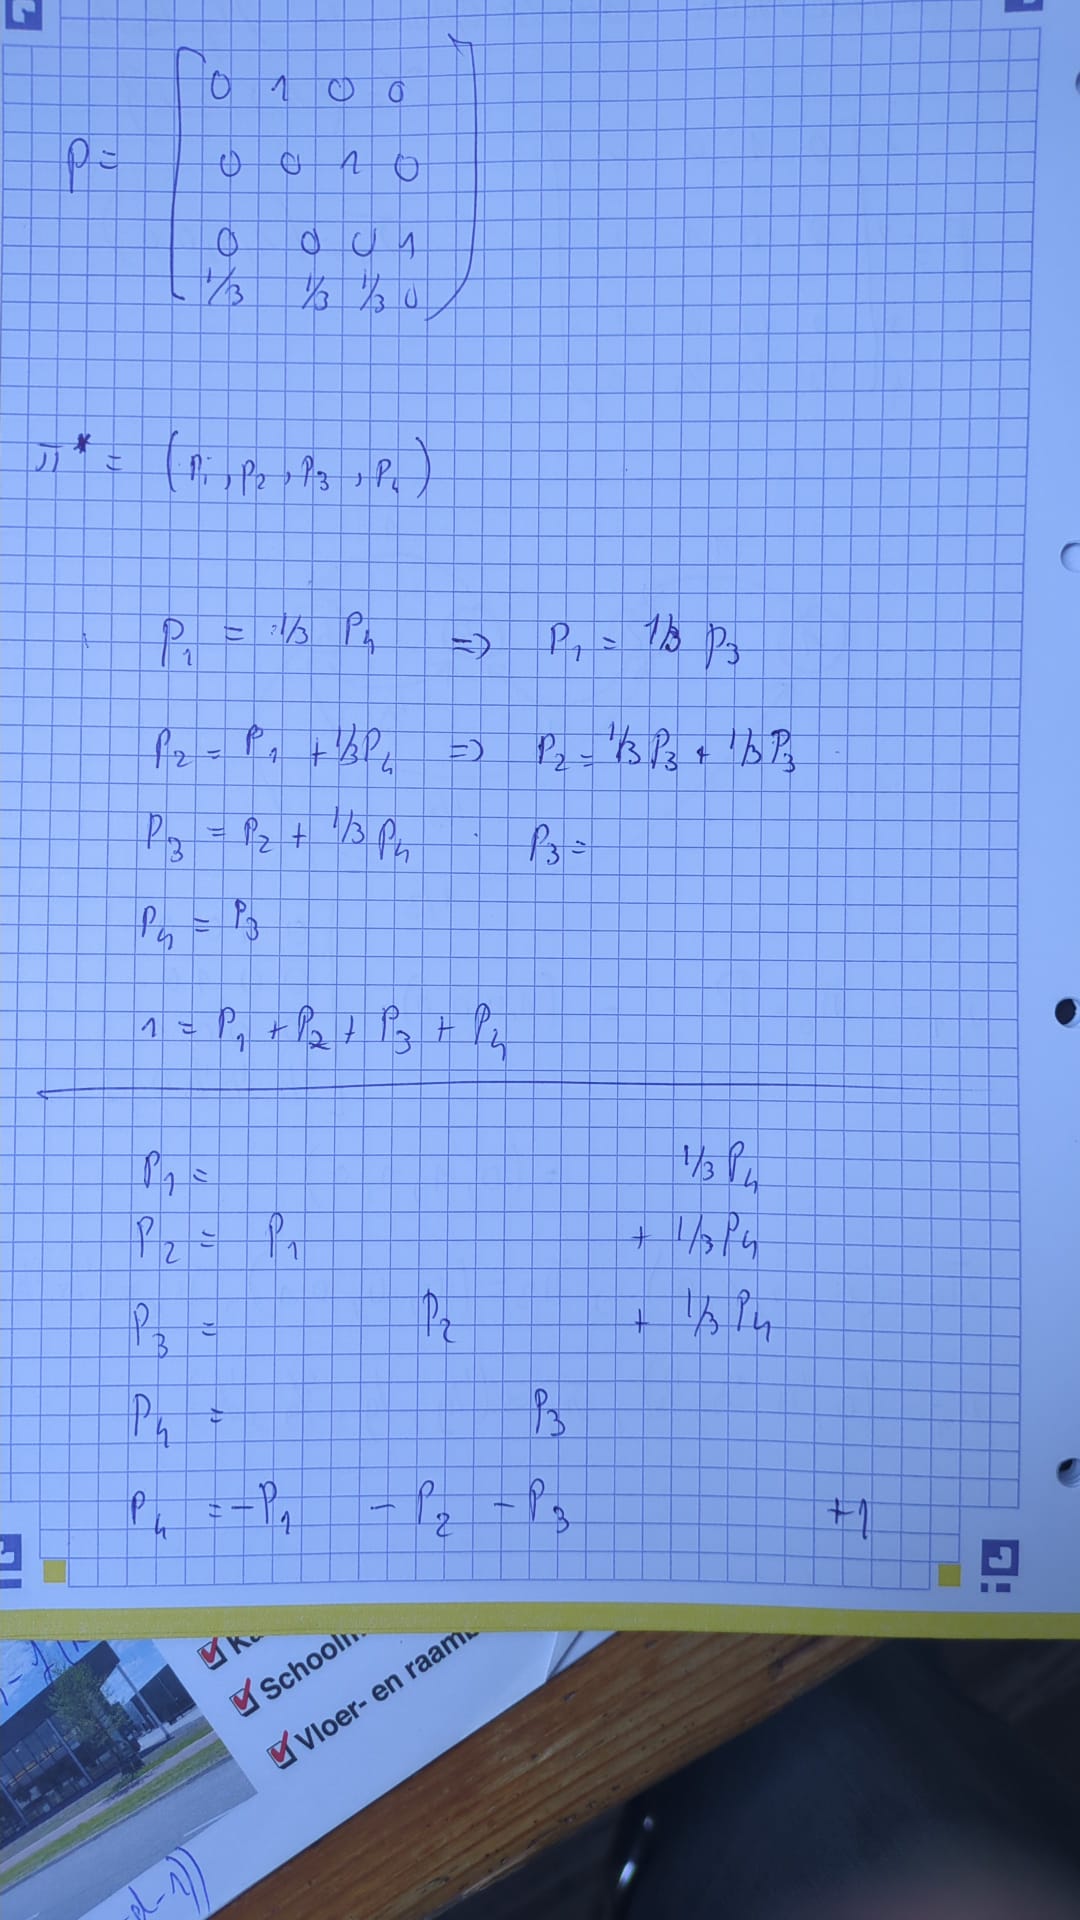 0 1 0 0
P = 0 0 1 0
0 0 0 1
1/3 1/3 1/3 0
π* = (P1, P2, P3, P4)
P1 = 1/3 P4 => P1 = 1/3 P3
P2 = P1 + 1/3 P4 => P2 = 1/3 P3 + 1/3 P3
P3 = P2 + 1/3 P4 P3 =
P4 = P3
1 = P1 + P2 + P3 + P4
P1 = 1/3 P4
P2 = P1 + 1/3 P4
P3 = P2 + 1/3 P4
P4 = P3
P4 = -P1 - P2 - P3 +1
Vloer- en
-d-1))